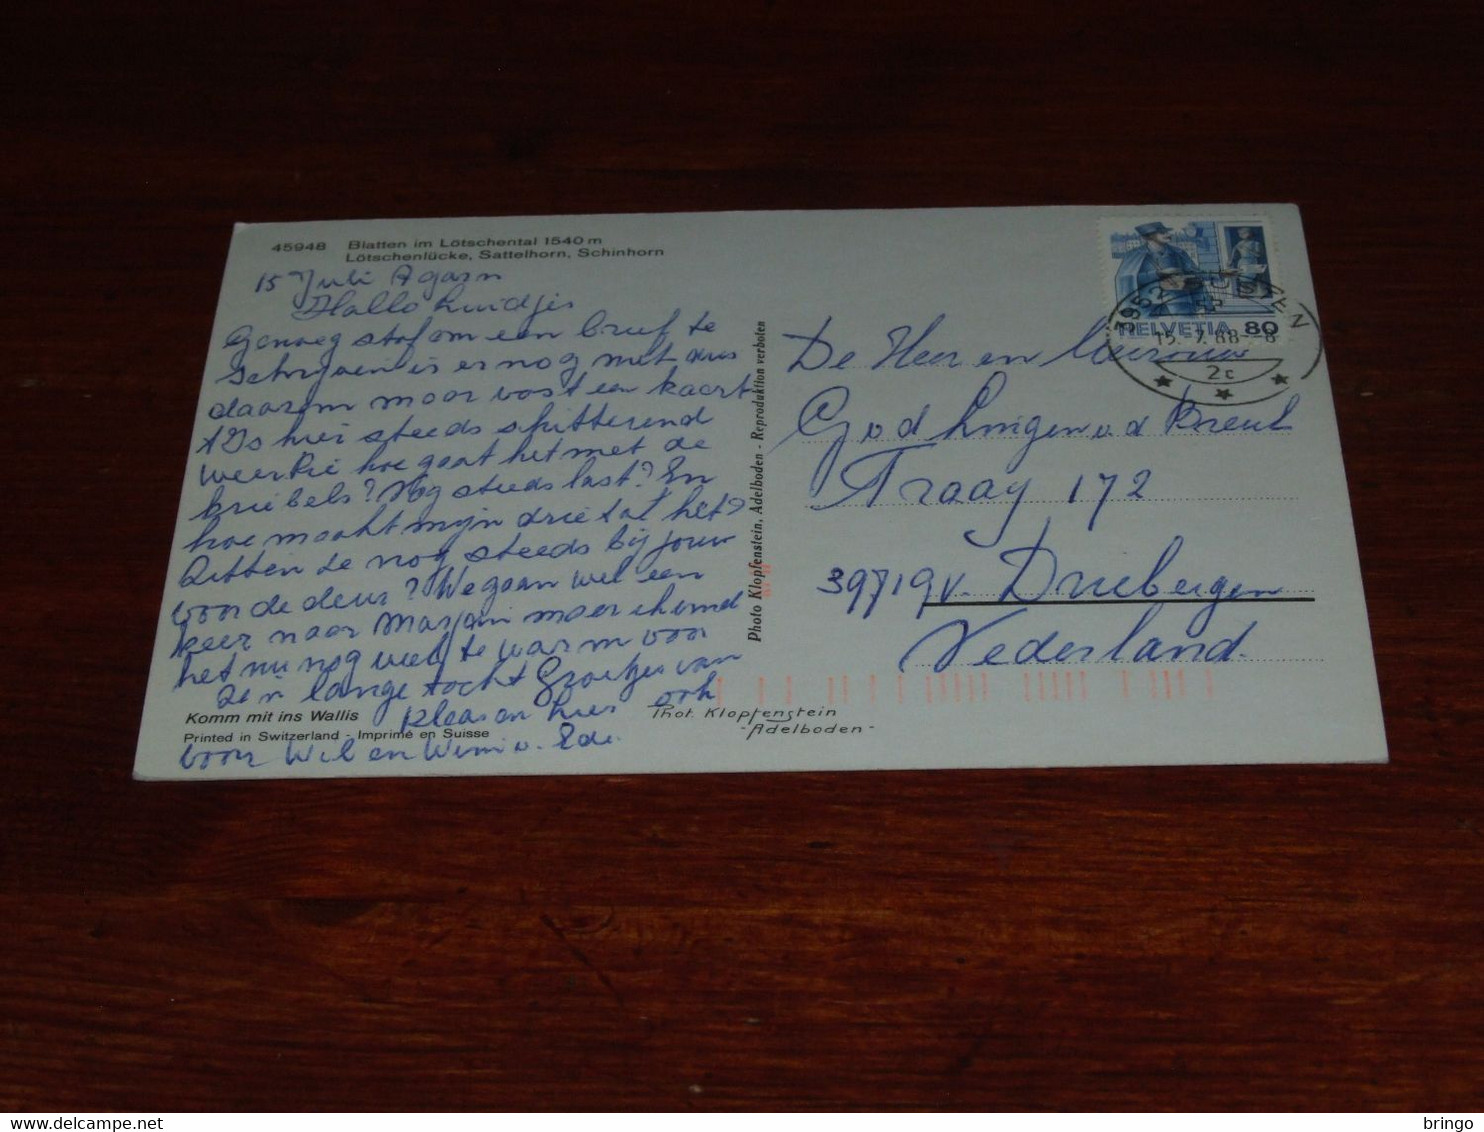 45948 Blatten im Lötschental 1540 m
Lötschenlücke, Sattelhorn, Schinhorn
15 Juli Agarn
Hallo luidjes
Genoeg stof om een brief te
schrijven is er nog niet dus
daarom maar vast een kaart
Is hier steeds schitterend
weer hoe gaat het met de
kriebels? Nog steeds last? En
hoe maakt mijn drietal het?
Zitten ze nog steeds bij jouw
voor de deur? We gaan wel een
keer naar Marjan maar
het nu nog veel te warm voor
zo'n lange tocht Groetjes van
hier ook
voor Wil en Wim v. Ede.
Komm mit ins Wallis
Printed in Switzerland - Imprimé en Suisse
Photo Klopfenstein, Adelboden - Reproduktion verboten
Phot. Klopfenstein
- Adelboden -
HELVETIA 80
3952
15.7.88-8
2c
De Heer en Mevrouw
God v.d Breul
Traay 172
3971 gv. Driebergen
Nederland.
© bringo
delcampe.net
bringo